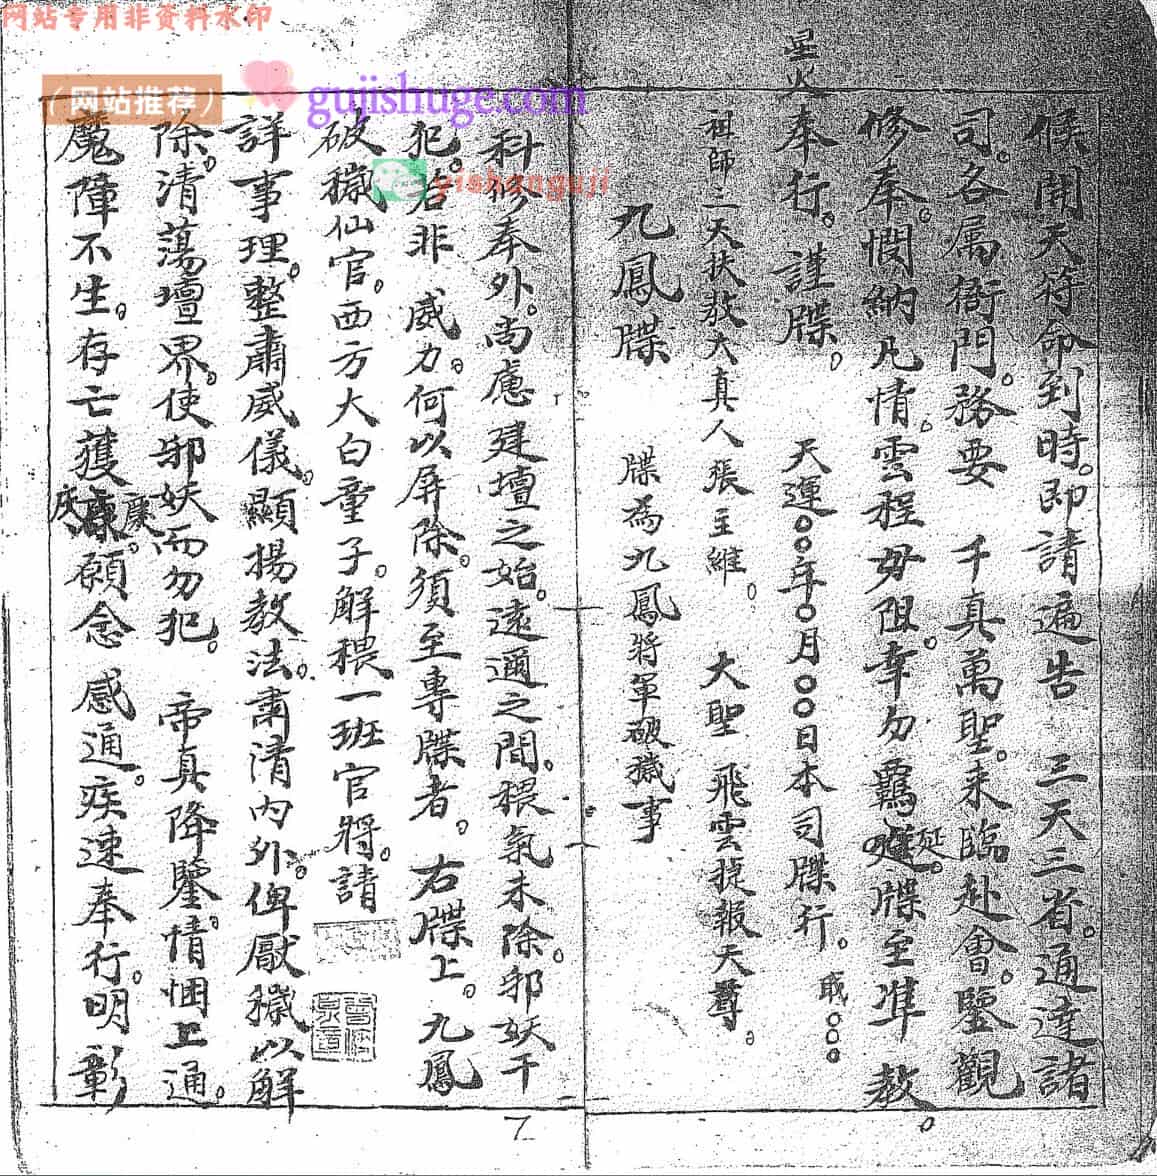 网站专用非资料水印
（网站推荐）
gujishuge.com
yishanguji
候開天符命到時。即請遍告 三天三省。通達諸
司。各属衙門。務要 千真萬聖。来臨赴會。鑒觀
修奉。憫納凡情。雲程毋阻。幸勿羈延。牒至準 教。
星火奉行。謹牒。 天運〇〇年〇月〇〇日本司牒行。 職〇〇〇
祖師三天扶教大真人張主維。 大聖 飛雲捷報天尊。
九鳳牒 牒為九鳳將軍破穢事
科修奉外。尚慮建壇之始。遠邇之間。穢氣未除。邪妖干
犯。若非 威力。何以屏除。須至專牒者。 右牒上。九鳳
破穢仙官。西方大白童子。解穢一班官將。請
詳事理。整肅威儀。顯揚教法。肅清内外。俾厭穢以解
除。清蕩壇界。使邪妖而勿犯。 帝真降鑒。情悃上通。
魔障不生。存亡獲慶。願念 感通。疾速奉行。明彰
7